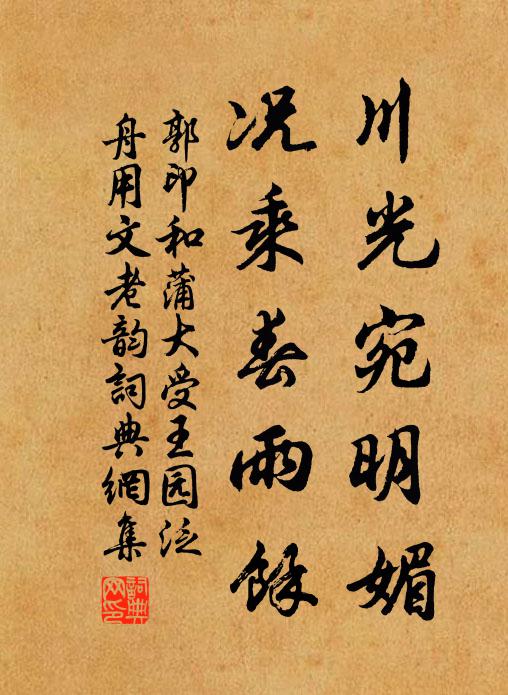 川光宛明媚
况乘春雨餘
郭印和蒲大受王园泛
舟用文老韵詞典網集
詞典网印